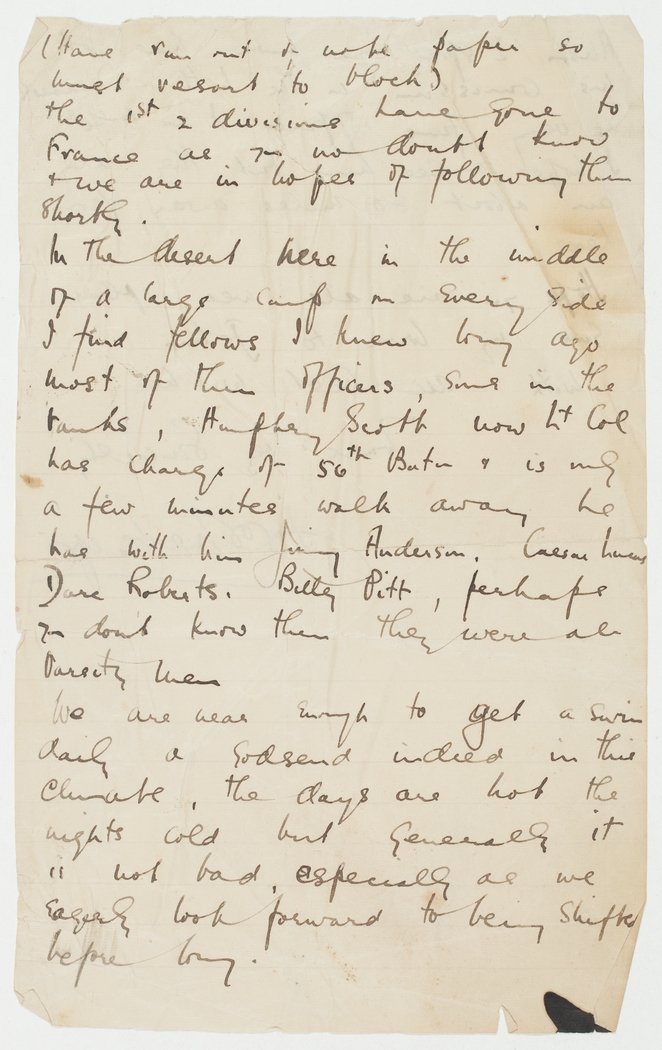 (Have run out of note paper so
must resort to block)
the 1st 2 divisions have gone to
France as you no doubt know
+ we are in hopes of following them
shortly.
In the desert here in the middle
of a large camp on every side
I find fellows I knew long ago
most of them officers, some in the
ranks, Humphrey Scott now Lt Col
has charge of 56th Batn & is only
a few minutes walk away he
has with him Jimmy Anderson. Caesar Lucas
Dave Roberts. Billy Pitt, perhaps
you dont know them they were all
Varsity men
We are near enough to get a swim
daily a Godsend indeed in this
climate, the days are hot the
nights cold but generally it
is not bad, especially as we
eagerly look forward to being shifted
before long.